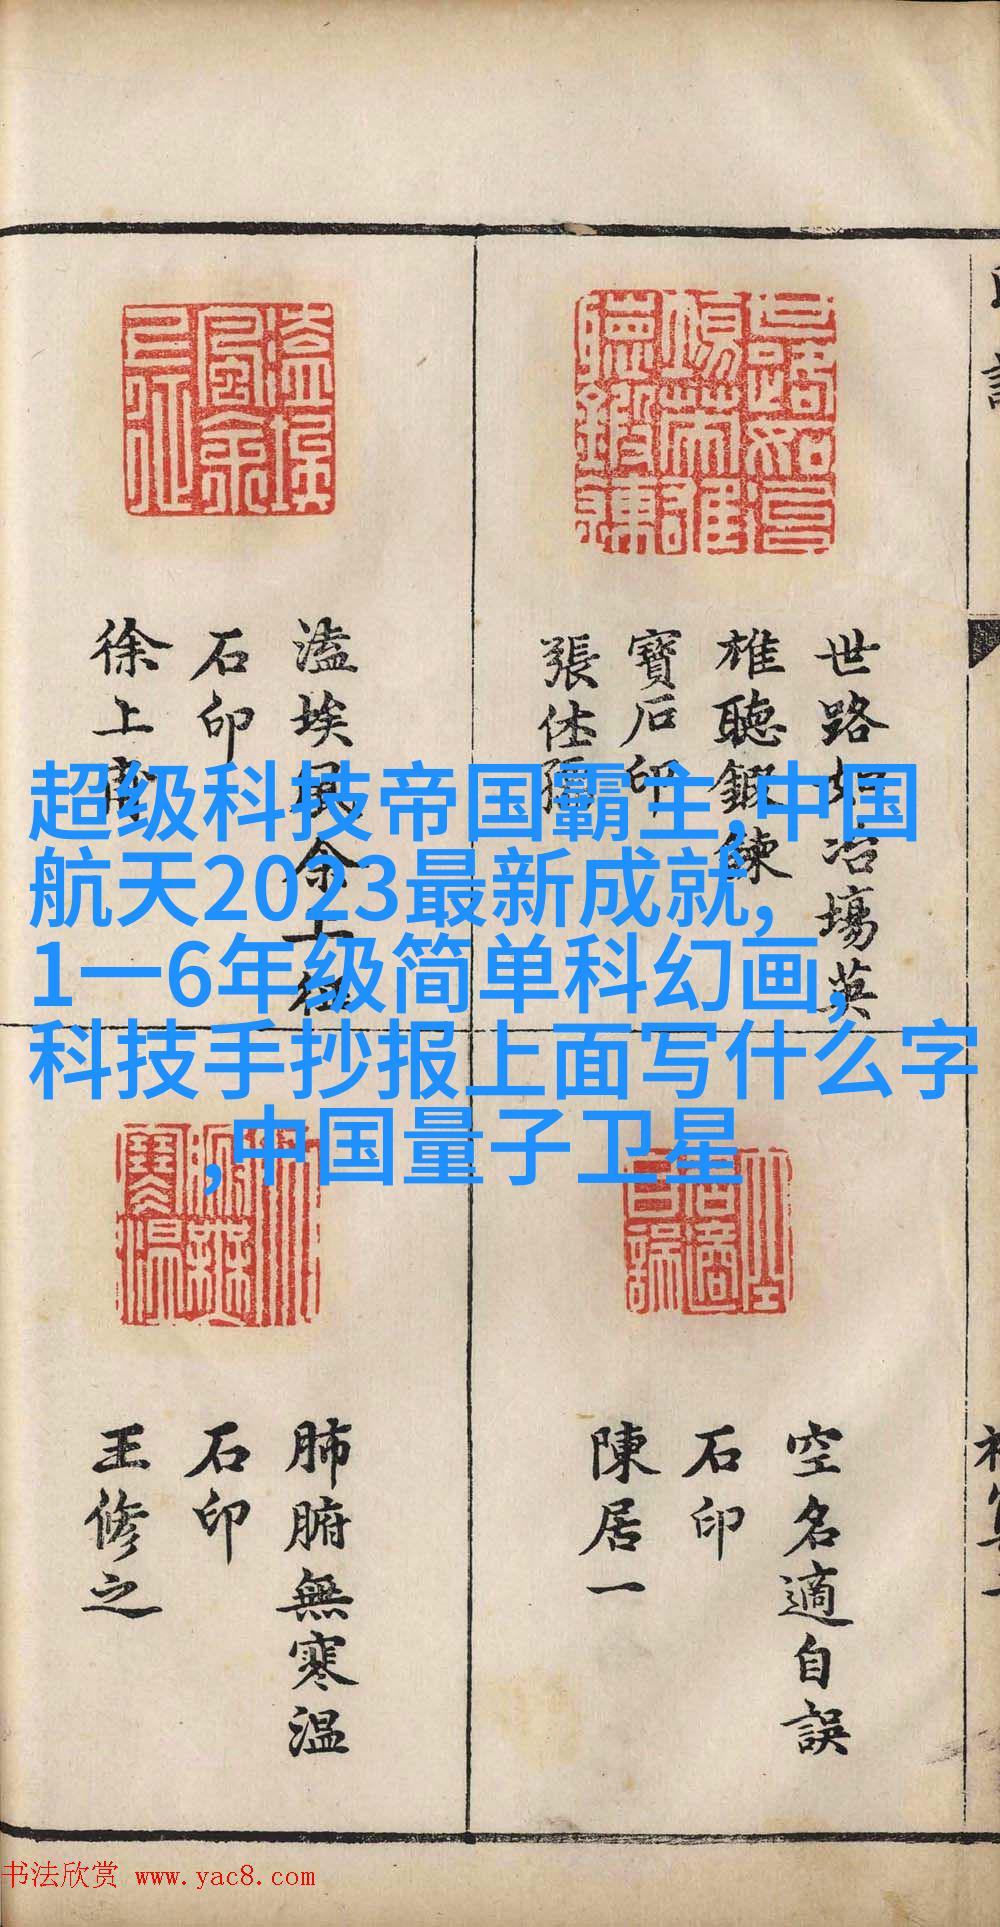 世路如冶場英
雄聽鍛鍊
寶石印
張
溘埃風余上征
石印
徐上
超级科技帝国霸主,中国
航天2023最新成就,
1一6年级简单科幻画,
科技手抄报上面写什么字
,中国量子卫星
空名適自誤
石印
陳居一
肺腑無寒温
石印
王修之
书法欣赏 www.yac8.com